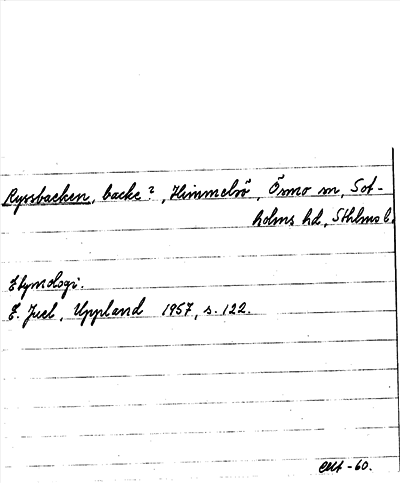 Ryssbacken, backe?, Himmelsö, Ösmo sn, Sot-
holms hd, Sthlms l.
Etymologi.
E. Juel, Uppland 1957, s. 122.
-60.